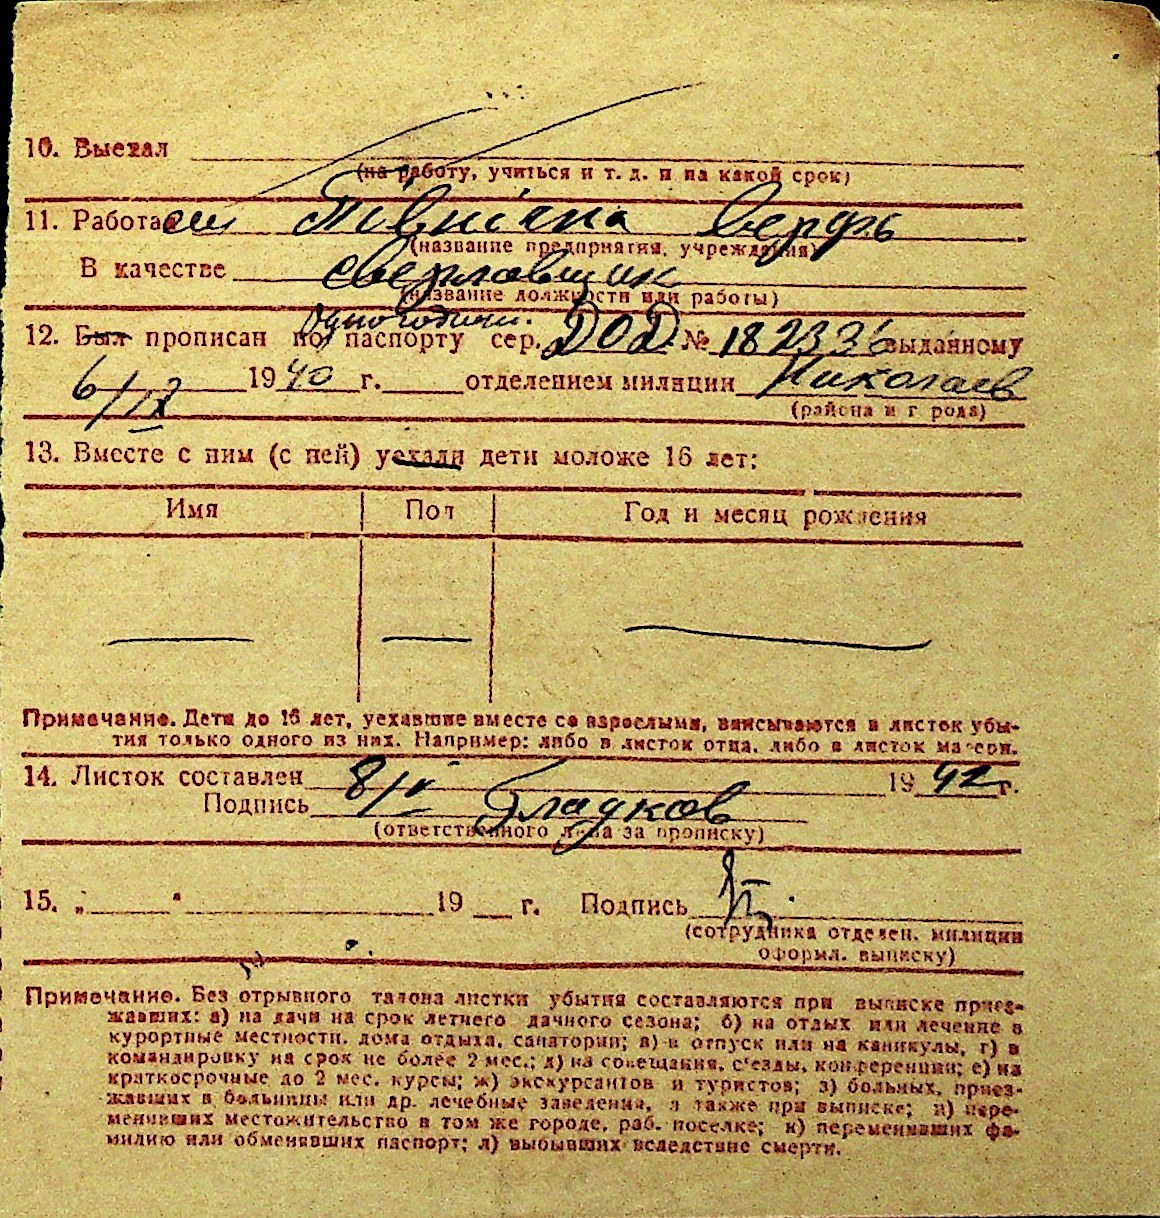 10. Выехал
(на работу, учиться и т. д. и на какой срок)
11. Работает Північна верфь
(название предприятия, учреждения)
В качестве сверловщик
(название должности или работы)
одногодичн.
12. Был прописан по паспорту сер. ДОД № 182336 выданному
6/IX 1940 г. отделением милиции Николаев
(района и города)
13. Вместе с ним (с ней) уехали дети моложе 16 лет:
Имя Пол Год и месяц рождения
Примечание. Дети до 16 лет, уехавшие вместе со взрослыми, вписываются в листок убы-
тия только одного из них. Например: либо в листок отца, либо в листок матери.
14. Листок составлен 8/V 1942 г.
Подпись Гладков
(ответственного лица за прописку)
15. „ " 19 г. Подпись
(сотрудника отделен. милиции
оформл. выписку)
Примечание. Без отрывного талона листки убытия составляются при выписке приез-
жавших: а) на дачи на срок летнего дачного сезона; б) на отдых или лечение в
курортные местности, дома отдыха, санатории; в) в отпуск или на каникулы, г) в
командировку на срок не более 2 мес.; д) на совещания, съезды, конференции; е) на
краткосрочные до 2 мес. курсы; ж) экскурсантов и туристов; з) больных, приез-
жавших в больницы или др. лечебные заведения, а также при выписке; и) пере-
менивших местожительство в том же городе, раб. поселке; к) переменивших фа-
милию или обменявших паспорт; л) выбывших вследствие смерти.